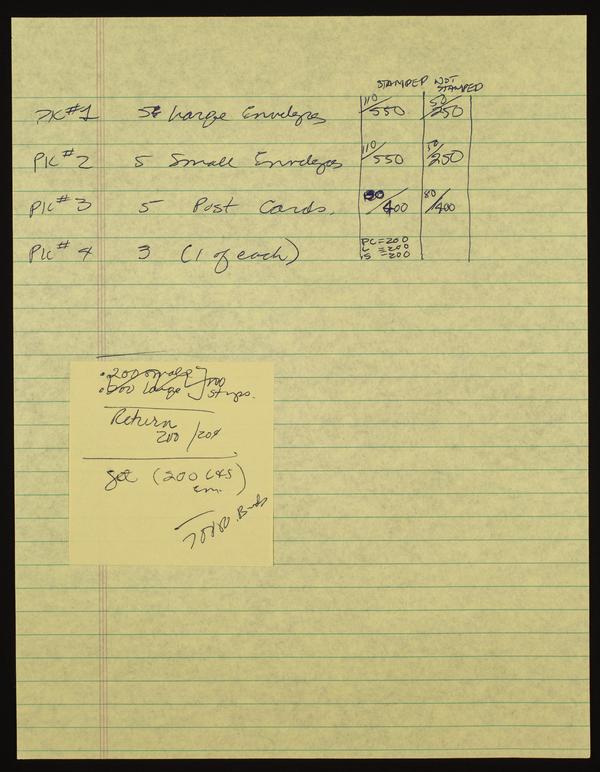 STAMPED NOT STAMPED
PK #1 5 Large Envelopes 110/550 50/250
PK #2 5 Small Envelopes 110/550 50/250
PK #3 5 Post Cards. 80/400 80/400
PK # 4 3 (1 of each) PC=200
L =200
S =200
• 200 small
• 200 large
Return
200 / 200
get (200 L&S